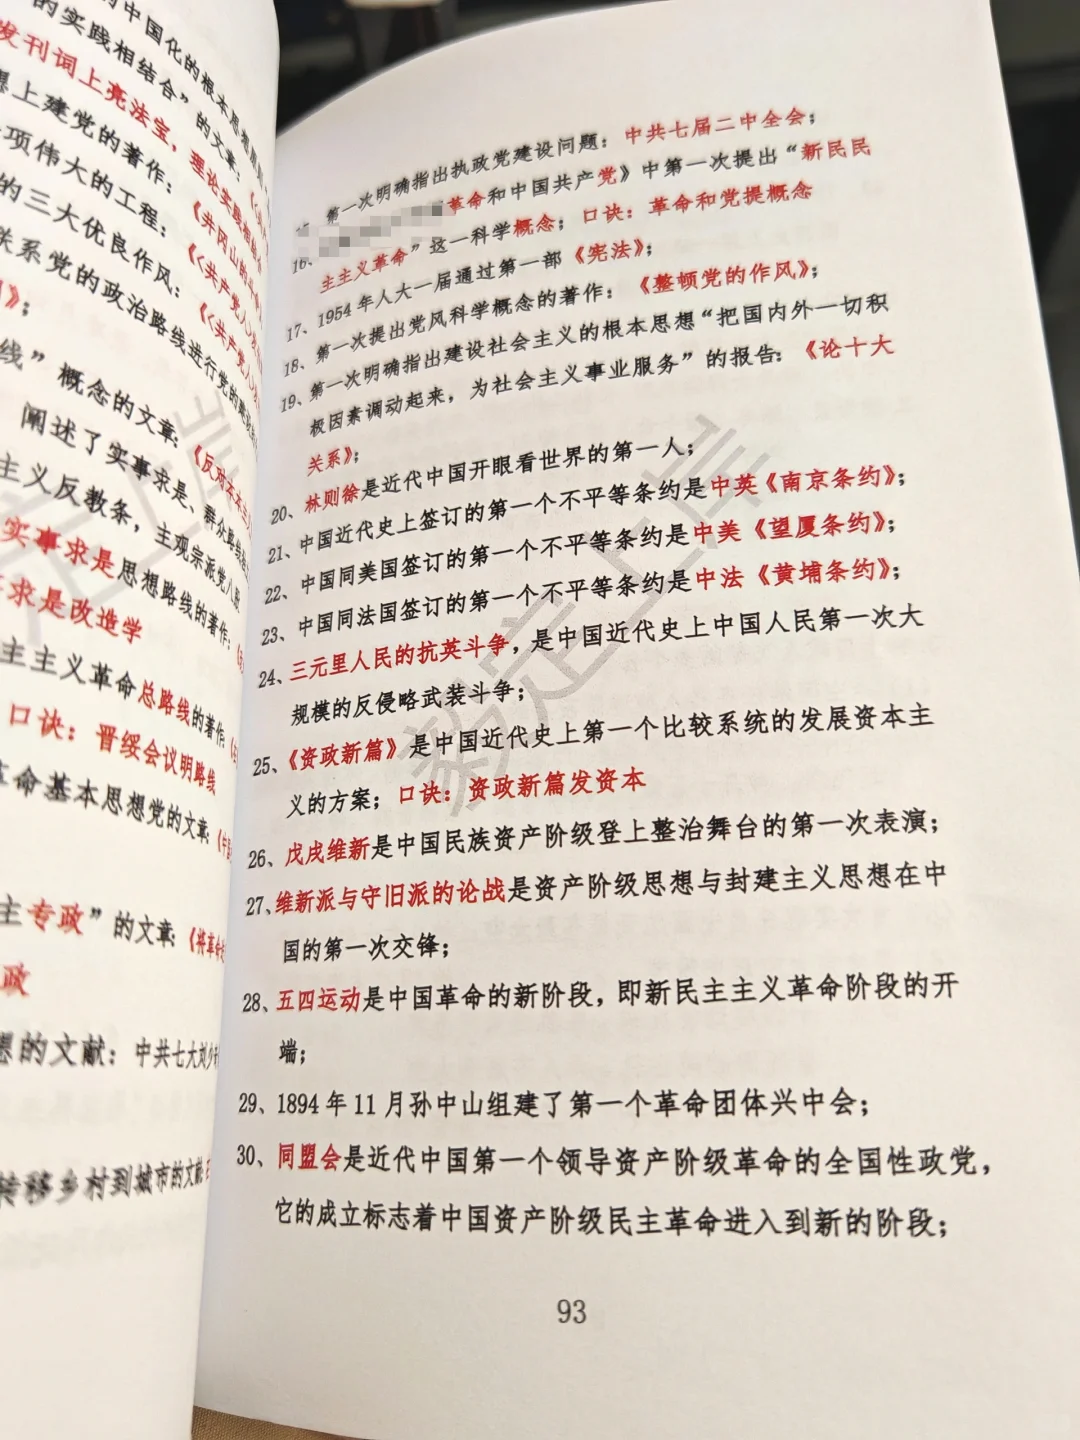 的中国化的根本思想
的实践相结合”的文章：
发刊词上亮法宝，理论实践相结合
想上建党的著作：
项伟大的工程：《井冈山的
的三大优良作风：《<共产党人>
关系党的政治路线进行党的
》；
线”概念的文章：《反对本本主
阐述了实事求是、群众路线
主义反教条，主观宗派党八股
实事求是思想路线的著作：
求是改造学
主主义革命总路线的著作：
口诀：晋绥会议明路线
革命基本思想党的文章：
主专政”的文章：《将革命
政
想的文献：中共七大刘少
转移乡村到城市的文献
第一次明确指出执政党建设问题：中共七届二中全会；
16、革命和中国共产党》中第一次提出“新民民
主主义革命”这一科学概念；口诀：革命和党提概念
17、1954年人大一届通过第一部《宪法》；
18、第一次提出党风科学概念的著作：《整顿党的作风》；
19、第一次明确指出建设社会主义的根本思想“把国内外一切积
极因素调动起来，为社会主义事业服务”的报告：《论十大
关系》；
20、林则徐是近代中国开眼看世界的第一人；
21、中国近代史上签订的第一个不平等条约是中英《南京条约》；
22、中国同美国签订的第一个不平等条约是中美《望厦条约》；
23、中国同法国签订的第一个不平等条约是中法《黄埔条约》；
24、三元里人民的抗英斗争，是中国近代史上中国人民第一次大
规模的反侵略武装斗争；
25、《资政新篇》是中国近代史上第一个比较系统的发展资本主
义的方案；口诀：资政新篇发资本
26、戊戌维新是中国民族资产阶级登上整治舞台的第一次表演；
27、维新派与守旧派的论战是资产阶级思想与封建主义思想在中
国的第一次交锋；
28、五四运动是中国革命的新阶段，即新民主主义革命阶段的开
端；
29、1894年11月孙中山组建了第一个革命团体兴中会；
30、同盟会是近代中国第一个领导资产阶级革命的全国性政党，
它的成立标志着中国资产阶级民主革命进入到新的阶段；
93